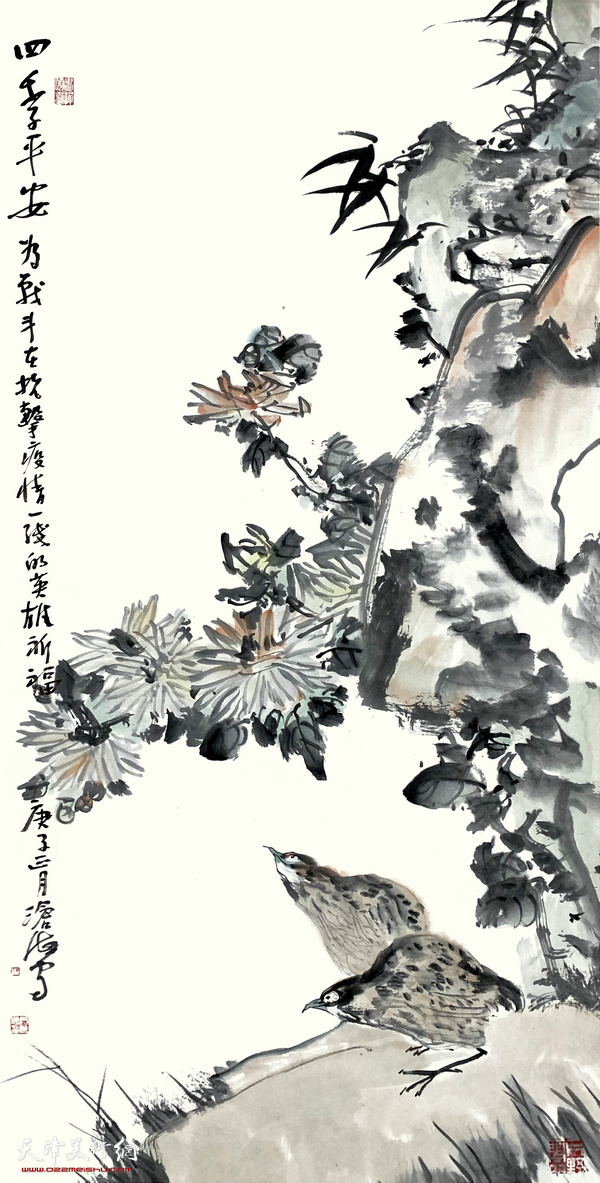 四季平安
为战斗在抗击疫情一线的英雄祈福
庚子正月沧海写
天津美术网
www.022meishu.com